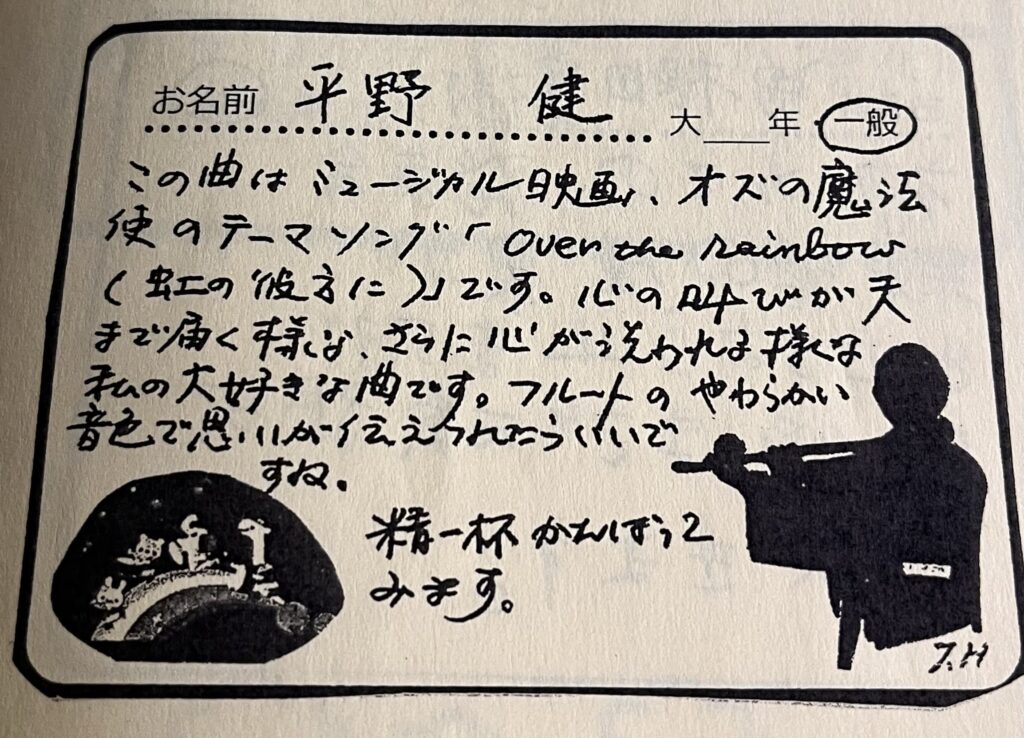 お名前 平野 健 大 年・一般
この曲はミュージカル映画、オズの魔法
使のテーマソング「Over the rainbow
(虹の彼方に)」です。心の叫びが天
まで届く様な、さらに心が洗われる様な
私の大好きな曲です。フルートのやわらかい
音色で思いが伝えられたらいいで
すね。
精一杯がんばって
みます。
T.H